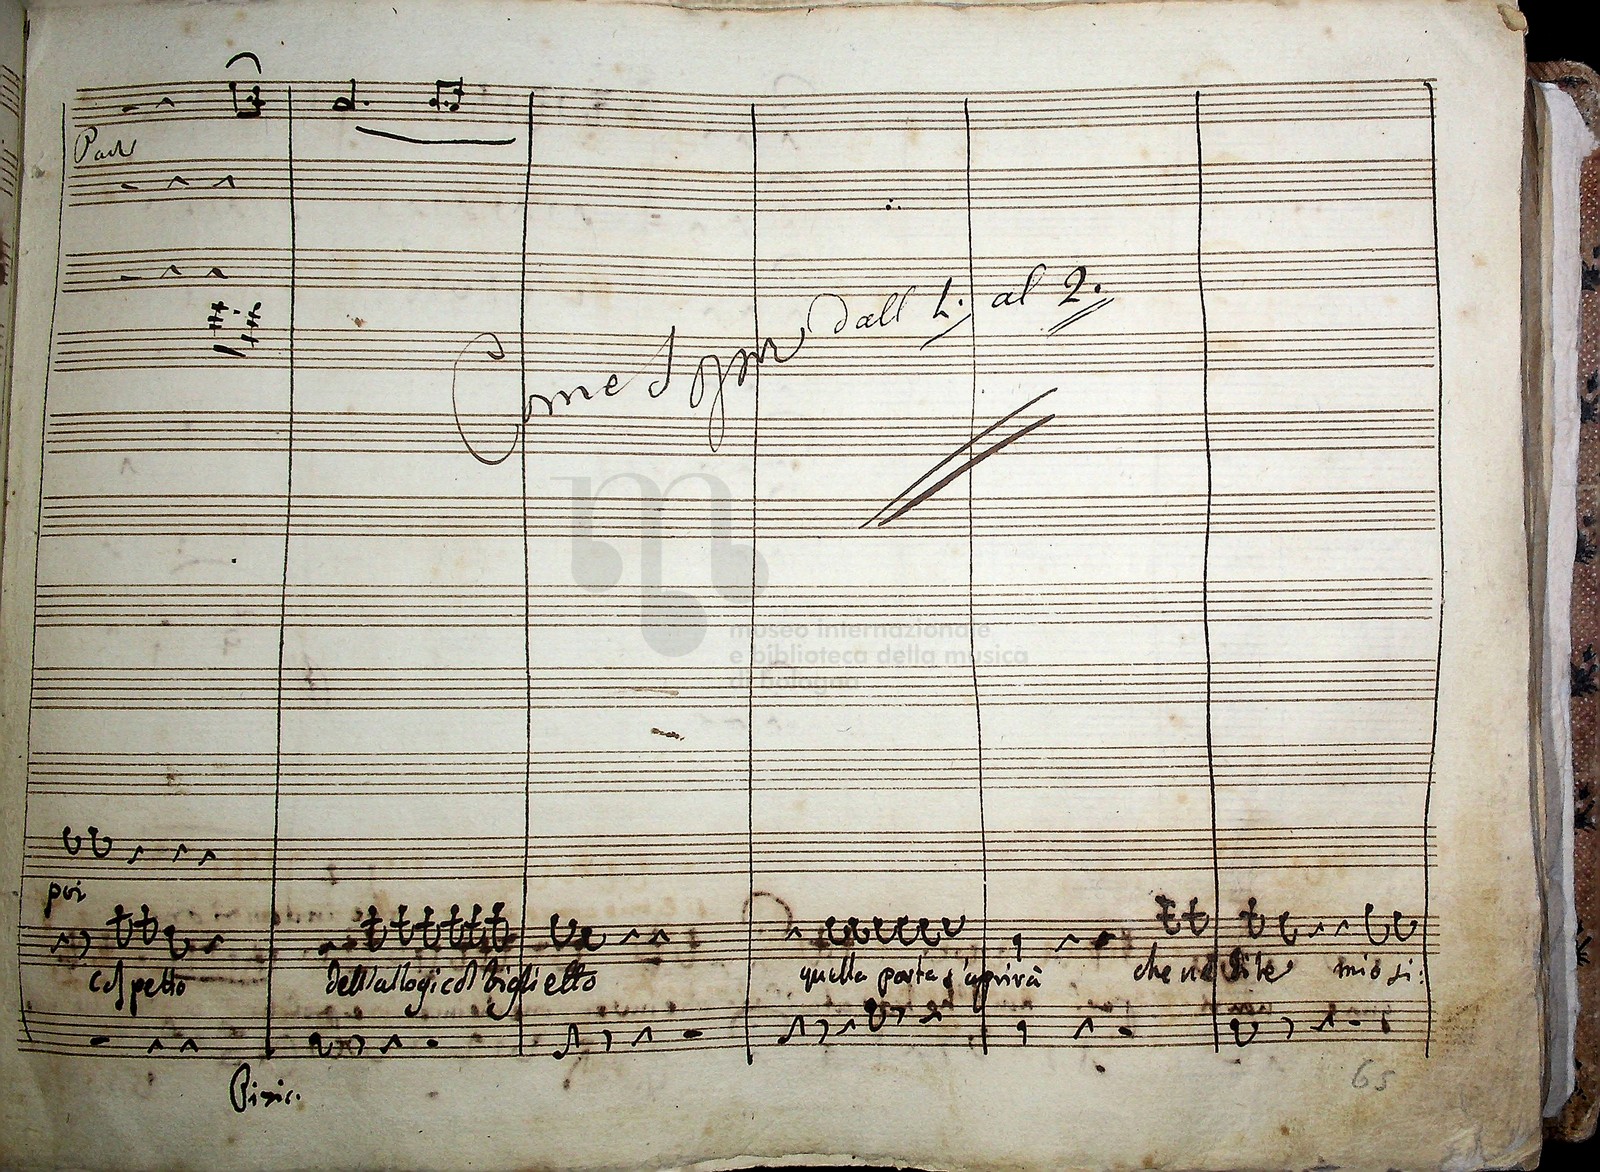 Come Sopra dall 1. al 2.
museo internazionale
e biblioteca della musica
di bologna
poi
col petto dell'allogico biglietto quella porta s'aprirà che ne dite mio si:
Pizzic.
65